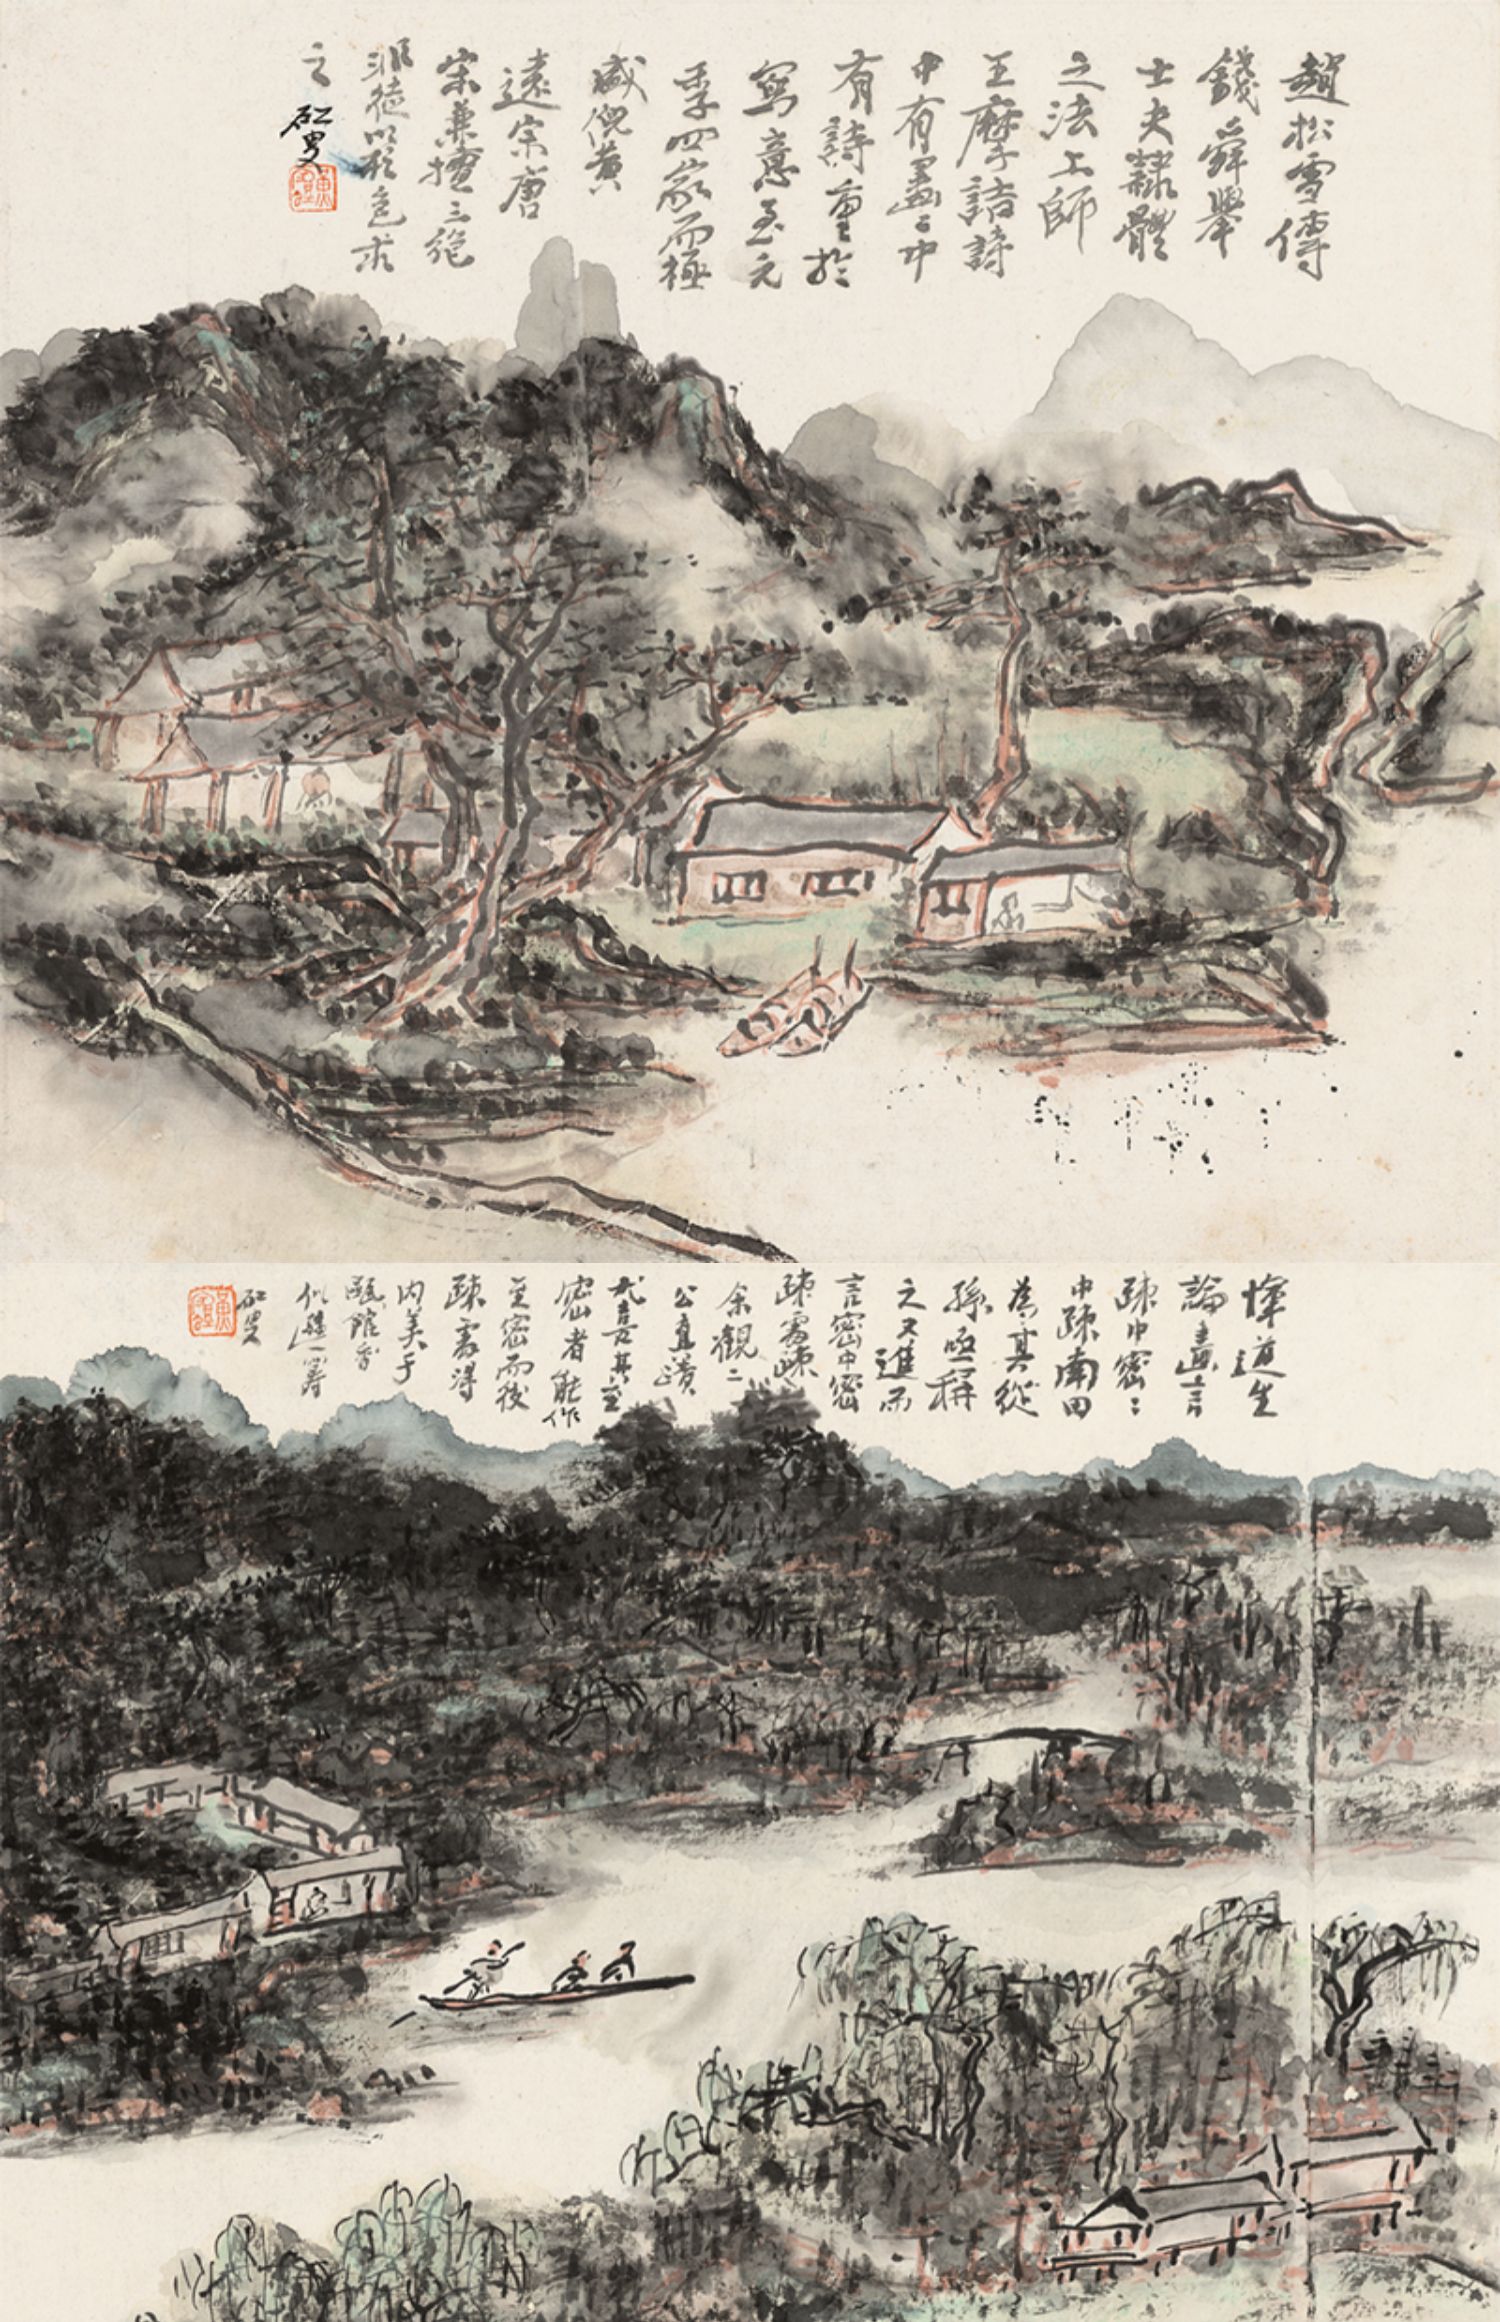 趙松雪傳
錢舜舉
士夫隸體
之法上師
王摩詰詩
中有畫畫中
有詩重於
寫意至元
季四家而極
盛倪黃
遠宗唐
宋兼擅三絕
非徒以形色求
之 虹叟
惲道生
論畫言
疎中密密
中疎南田
為其從
孫亟稱
之又進而
言密中密
疎處疎
余觀二
公真蹟
尤喜其至
密者能作
至密而後
疎處得
内美于
甌館香
似隔一籌
虹叟